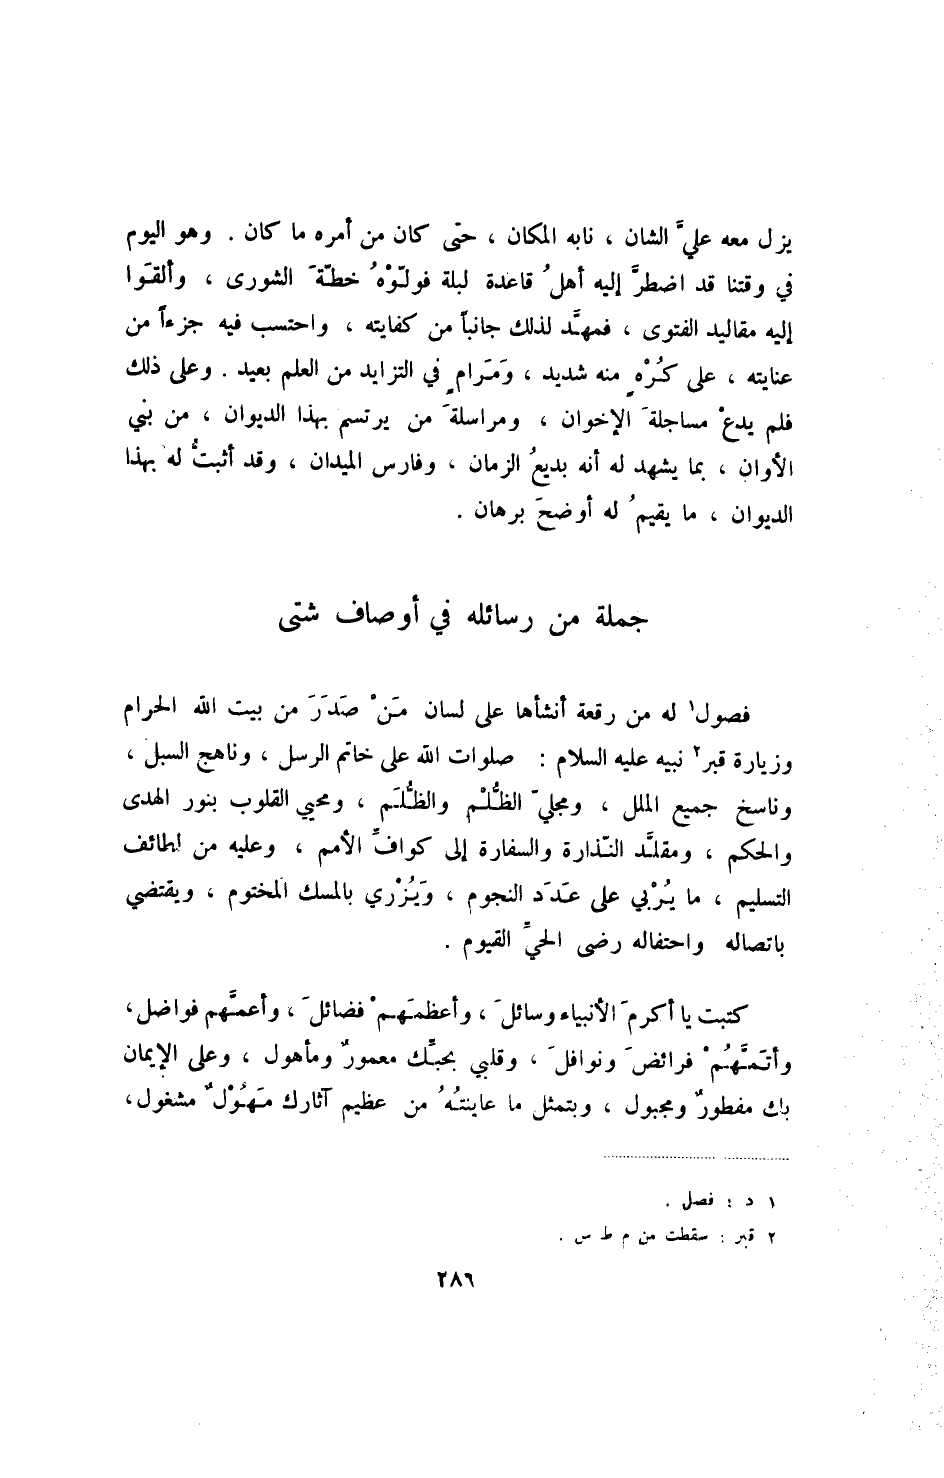 يزل معه عليَّ الشان ، نابه المكان ، حتى كان من أمره ما كان . وهو اليوم
في وقتنا قد اضطرَّ إليه أهلُ قاعدة لبلة فولّوْهُ خطّةَ الشورى ، وألقَوا
إليه مقاليد الفتوى ، فمهَّد لذلك جانباً من كفايته ، واحتسب فيه جزءاً من
عنايته ، على كُرْهٍ منه شديد ، وَمَرامٍ في التزايد من العلم بعيد . وعلى ذلك
فلم يدعْ مساجلةَ الإخوان ، ومراسلةَ من يرتسم بهذا الديوان ، من بني
الأوان ، بما يشهد له أنه بديعُ الزمان ، وفارس الميدان ، وقد أثبتُّ له بهذا
الديوان ، ما يقيمُ له أوضحَ برهان .
جملة من رسائله في أوصاف شتى
فصول١ له من رقعة أنشأها على لسان مَنْ صَدَرَ من بيت الله الحرام
وزيارة قبر٢ نبيه عليه السلام : صلوات الله على خاتم الرسل ، وناهج السبل ،
وناسخ جميع الملل ، ومجلي الظُّلْم والظُّلَم ، ومحيي القلوب بنور الهدى
والحكم ، ومقلَّد النّذارة والسفارة إلى كوافِّ الأمم ، وعليه من لطائف
التسليم ، ما يُرْبي على عَدَد النجوم ، وَيُزْري بالمسك المختوم ، ويقتضي
باتصاله واحتفاله رضى الحيِّ القيوم .
كتبت يا أكرمَ الأنبياء وسائلَ ، وأعظمَهمْ فضائلَ ، وأعمَّهم فواضل ،
وأتَمَّهُمْ فرائضَ ونوافلَ ، وقلبي بحبِّك معمورٌ ومأهول ، وعلى الإيمان
بك مفطورٌ ومجبول ، وبتمثل ما عاينتُهُ من عظيم آثارك مَهُوْلٌ مشغول ،
١ د : فصل .
٢ قبر : سقطت من م ط س .
٢٨٦